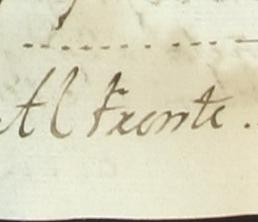 Al Fronte.